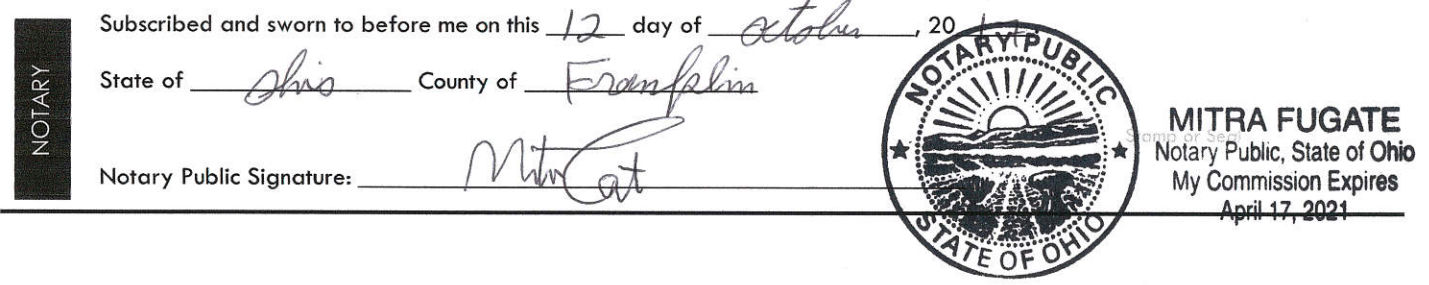 NOTARY
Subscribed and sworn to before me on this 12 day of October, 20
State of Ohio County of Franklin
Notary Public Signature:
NOTARY PUBLIC
STATE OF OHIO
Stamp or Seal
MITRA FUGATE
Notary Public, State of Ohio
My Commission Expires
April 17, 2021